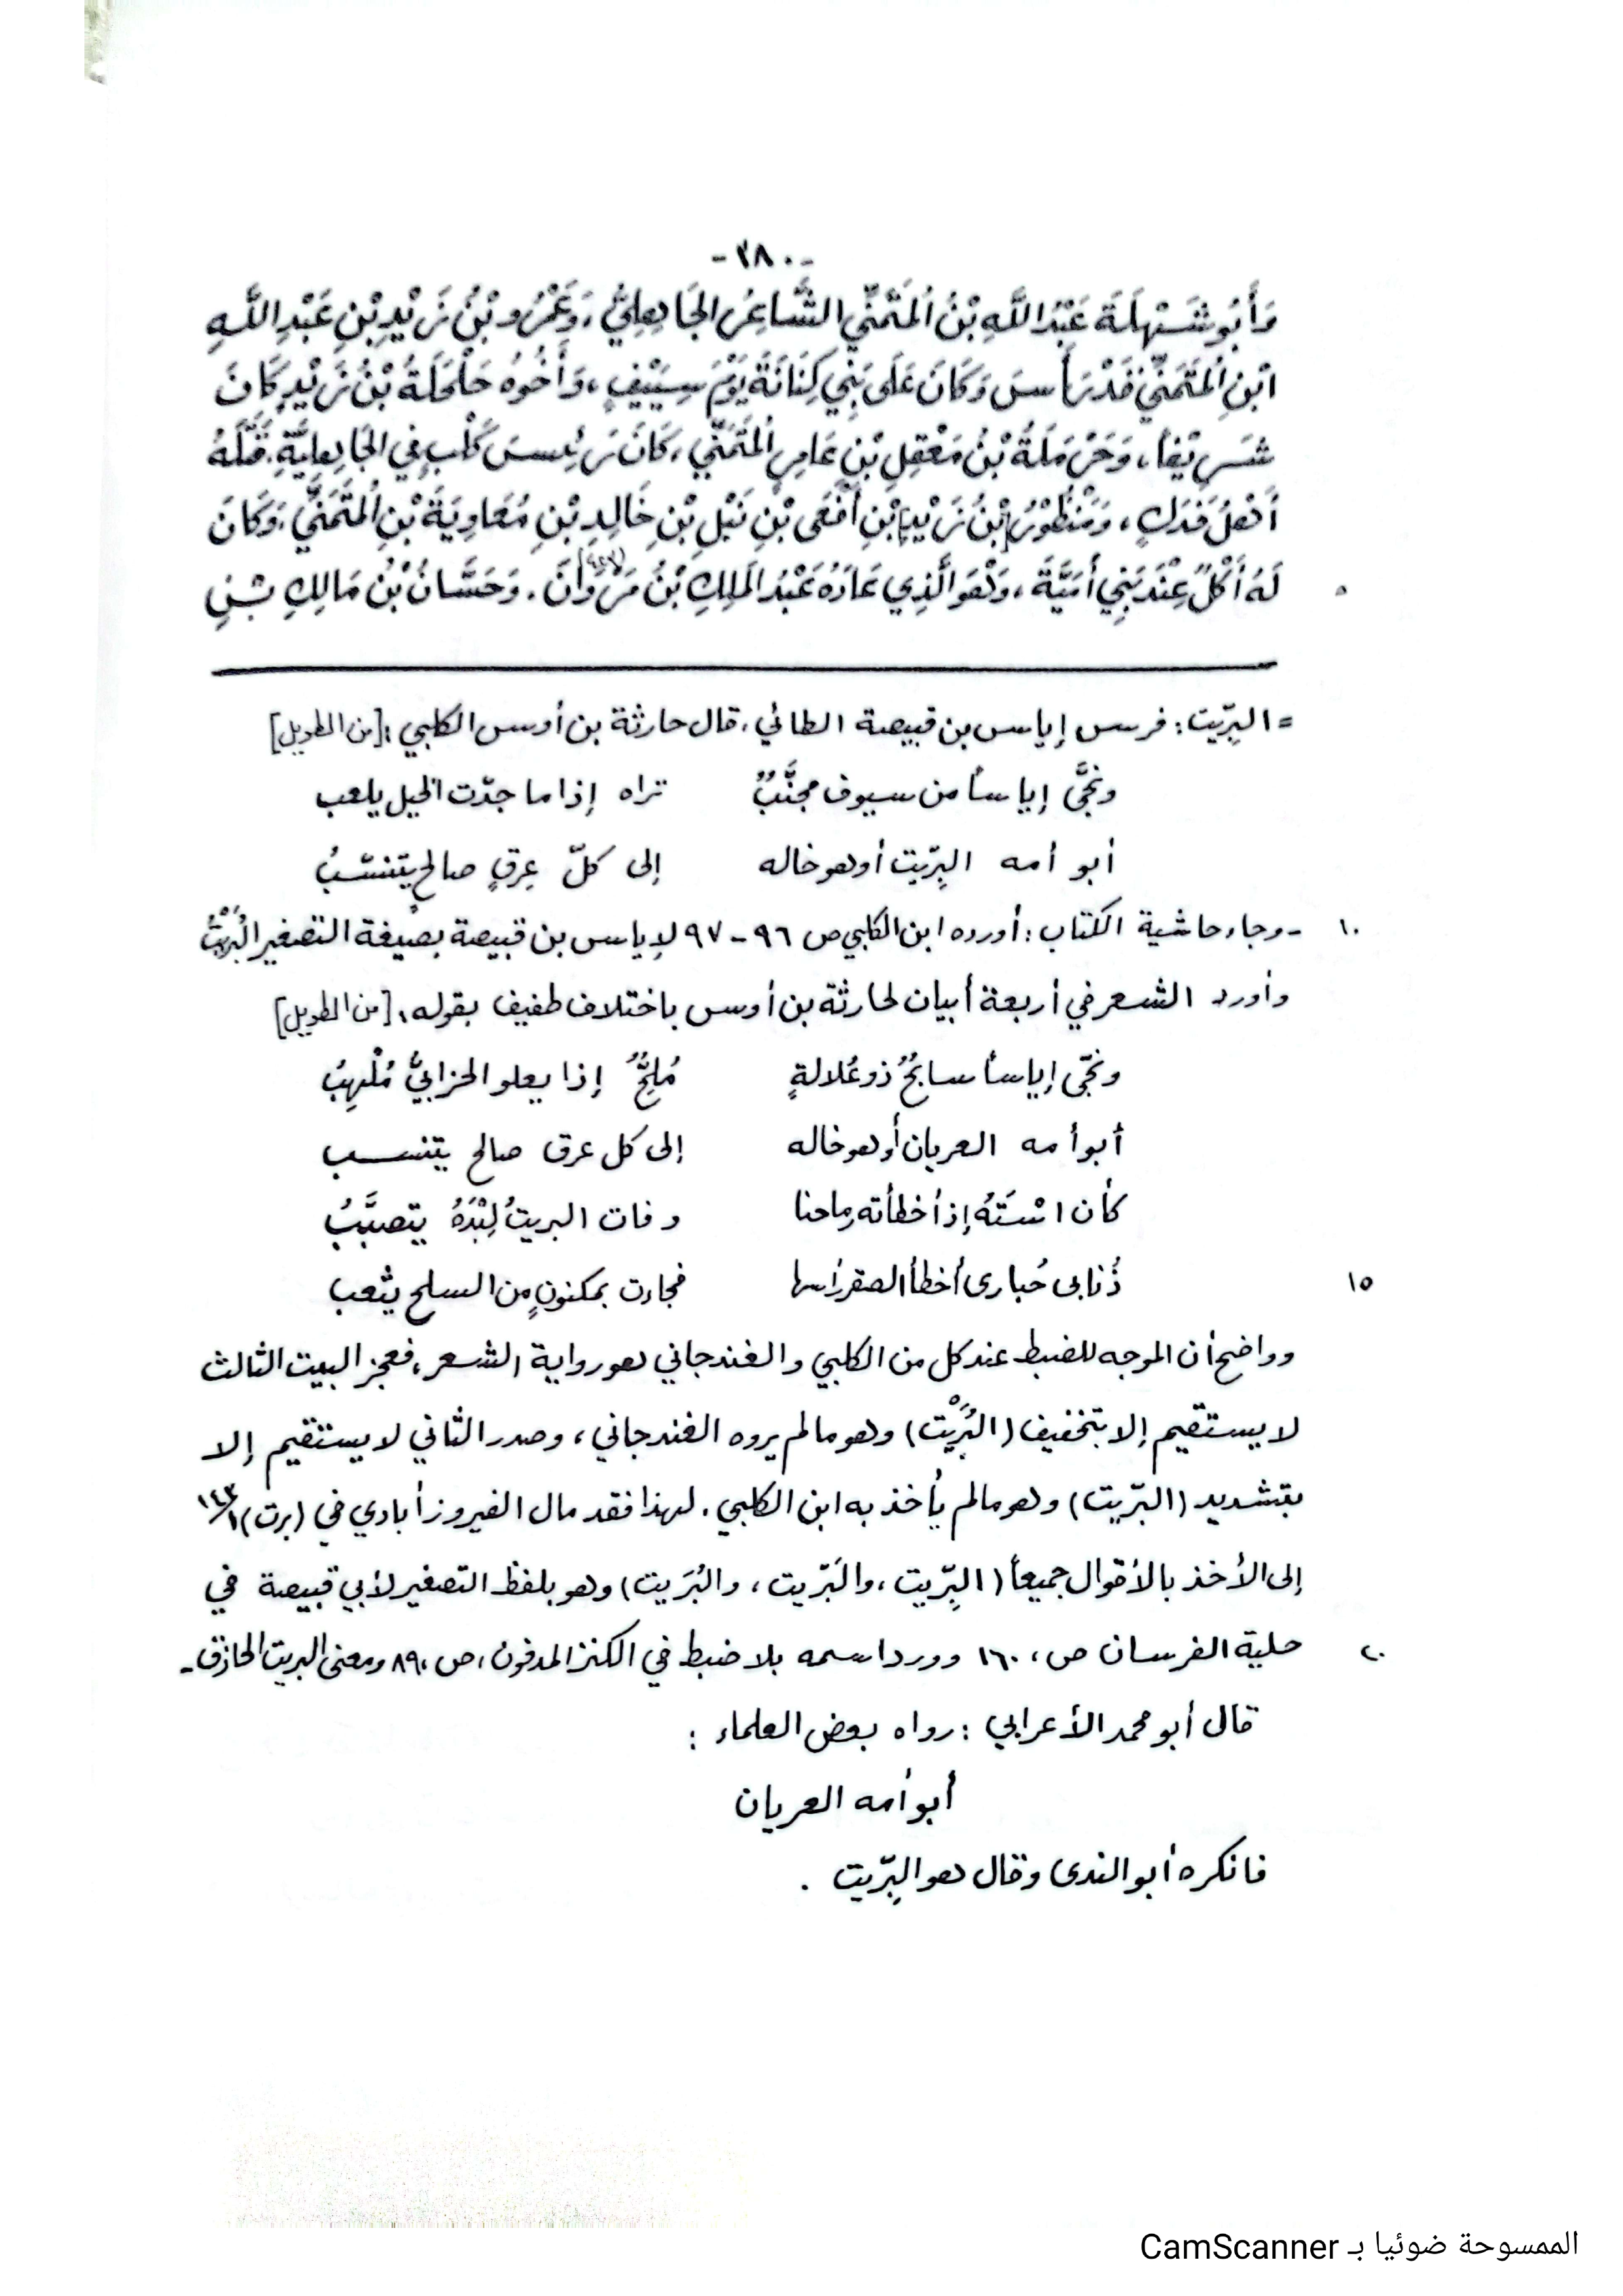 -٣٨٠-
وَأَبُو شَهْلَةَ عَبْدُ اللَّهِ بْنُ المُتَمَنِّي الشَّاعِرُ الجَاهِلِيُّ، وَعَمْرُو بْنُ زَيْدِ بْنِ عَبْدِ اللَّهِ
ابْنِ المُتَمَنِّي قَدْ رَأَسَ وَكَانَ عَلَى بَنِي كِنَانَةَ يَوْمَ سِيَيْفٍ، وَأَخُوهُ حَلْحَلَةُ بْنُ زَيْدٍ كَانَ
شَرِيْفاً، وَحَرْمَلَةُ بْنُ مَعْقِلِ بْنِ عَامِرِ المُتَمَنِّي، كَانَ رَئِيسَ كَلْبٍ فِي الجَاهِلِيَّةِ. قَتَلَهُ
أَهْلُ فَدَكٍ، وَمَنْظُوْرُ [بْنُ زَيْدِ] بْنِ أَفْعَى بْنِ نَبْلِ بْنِ خَالِدِ بْنِ مُعَاوِيَةَ بْنِ المُتَمَنِّي، وَكَانَ
لَهُ أَكْلٌ عِنْدَ بَنِي أُمَيَّةَ، وَهْوَ الَّذِي عَادَهُ عَبْدُ المَلِكِ بْنُ مَرْوَانَ. وَحَسَّانُ بْنُ مَالِكِ بْنِ
٥
= البِرِّيت: فرس إياس بن قبيصة الطائي، قال حارثة بن أوس الكلبي: [من الطويل]
ونجَّى إياساً من سيوف مجنَّبٌ تراه إذا ما جدّت الخيل يلعب
أبو أمه البِرِّيت أو هو خاله إلى كلّ عِرقٍ صالحٍ يتنسّبُ
١٠ - وجاء حاشية الكتاب: أورده ابن الكلبي ص ٩٦-٩٧ لإياس بن قبيصة بصيغة التصغير البُرَيْتُ
وأورد الشعر في أربعة أبيات لحارثة بن أوس باختلاف طفيف بقوله، [من الطويل]
ونجّى إياساً سابحٌ ذو عُلالةٍ مُلِحٌّ إذا يعلو الحزابيَّ مُلْهِبُ
أبو أمه العريان أو هو خاله إلى كل عرق صالح يتنسب
كأن اسْتَهُ إذ أخطأته رماحنا وفات البريتُ لِبْدَهُ يتصبَّبُ
١٥ ذُنابى حُبارى أخطأ الصقر رأسها فجاءت بمكنونٍ من السلح يثعب
وواضح أن الموجه للضبط عند كل من الكلبي والغندجاني هو رواية الشعر، فعجز البيت الثالث
لا يستقيم إلا بتخفيف (البُرَيْت) وهو مالم يروه الغندجاني، وصدر الثاني لا يستقيم إلا
بتشديد (البرّيت) وهو مالم يأخذ به ابن الكلبي. لهذا فقد مال الفيروزأبادي في (برت) ١/١٤٣
إلى الأخذ بالأقوال جميعاً (البِرِّيت، والبَرِّيت، والبُرَيت) وهو بلفظ التصغير لأبي قبيصة في
٢٠ حلية الفرسان ص، ١٦٠ وورد اسمه بلا ضبط في الكنز المدفون، ص، ٨٩ ومعنى البريت الحاذق-
قال أبو محمد الأعرابي: رواه بعض العلماء:
أبو أمه العريان
فانكره أبو الندى وقال هو البِرِّيت.
الممسوحة ضوئيا بـ CamScanner